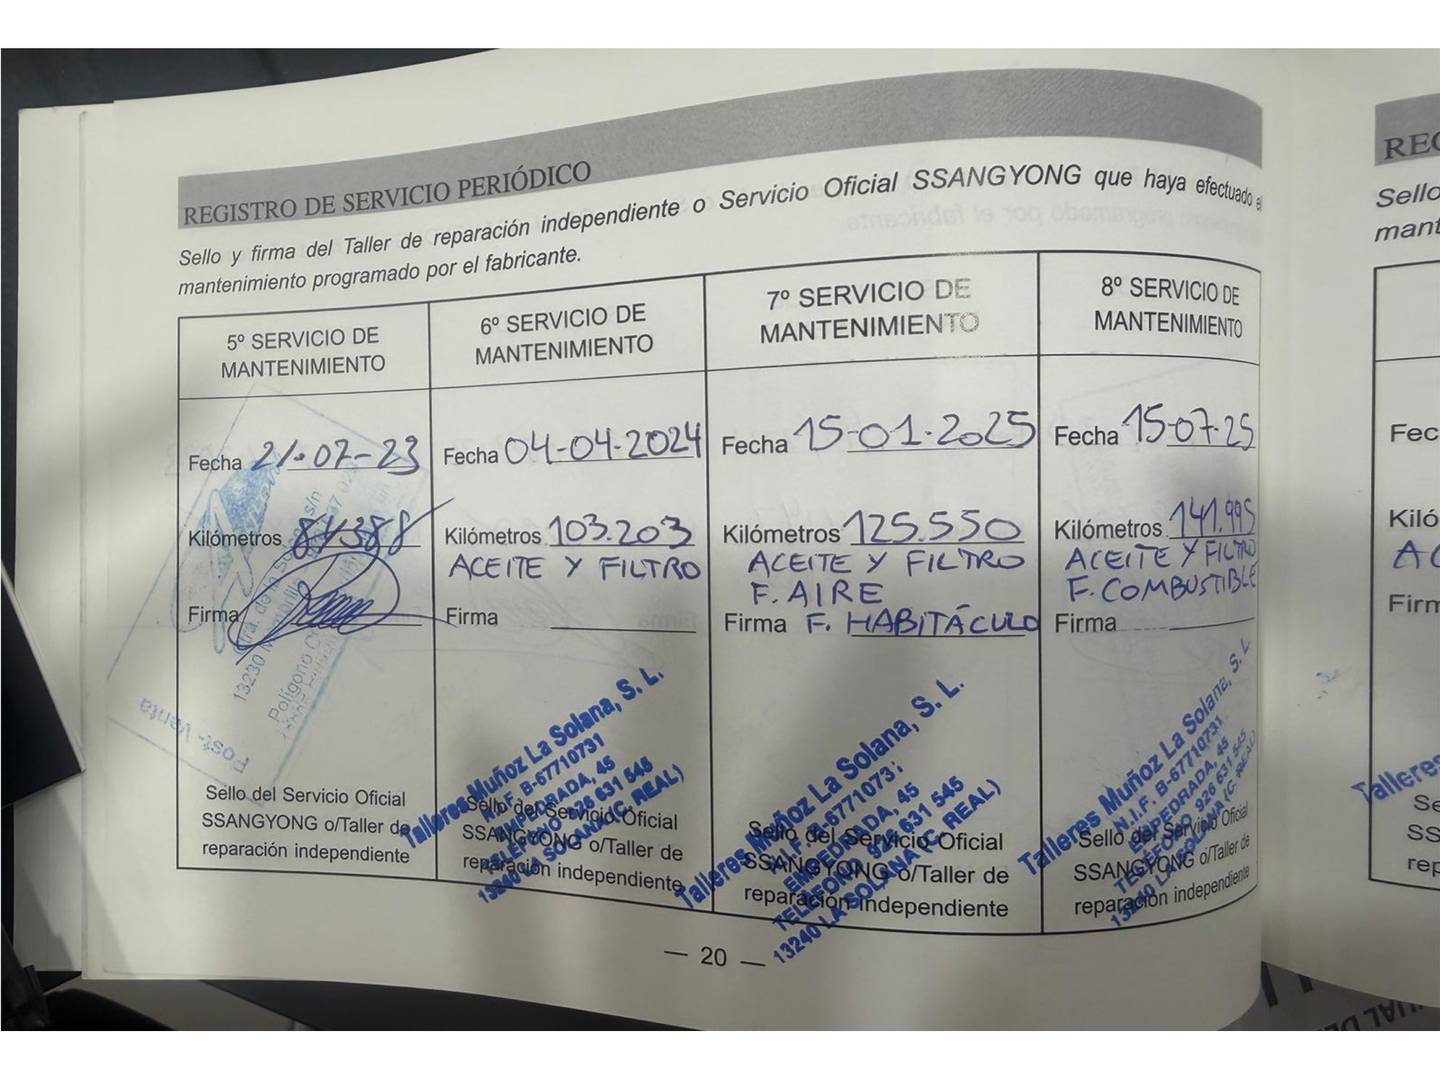 REGISTRO DE SERVICIO PERIÓDICO
Sello y firma del Taller de reparación independiente o Servicio Oficial SSANGYONG que haya efectuado el
mantenimiento programado por el fabricante.
5º SERVICIO DE
MANTENIMIENTO
Fecha 21-07-23
Kilómetros 84388
Firma
Post-Venta
Sello del Servicio Oficial
SSANGYONG o/Taller de
reparación independiente
6º SERVICIO DE
MANTENIMIENTO
Fecha 04-04-2024
Kilómetros 103.203
ACEITE Y FILTRO
Firma
Talleres Muñoz La Solana, S. L.
N.I.F. B-67710731
EMPEDRADA, 45
TELEFONO 926 631 545
13240 LA SOLANA (C. REAL)
Sello del Servicio Oficial
SSANGYONG o/Taller de
reparación independiente
7º SERVICIO DE
MANTENIMIENTO
Fecha 15-01-2025
Kilómetros 125.550
ACEITE Y FILTRO
F. AIRE
Firma F. HABITÁCULO
Talleres Muñoz La Solana, S. L.
N.I.F. B-67710731
EMPEDRADA, 45
TELEFONO 926 631 545
13240 LA SOLANA (C. REAL)
Sello del Servicio Oficial
SSANGYONG o/Taller de
reparación independiente
8º SERVICIO DE
MANTENIMIENTO
Fecha 15-07-25
Kilómetros 141.995
ACEITE Y FILTRO
F. COMBUSTIBLE
Firma
Talleres Muñoz La Solana, S. L
N.I.F. B-67710731
EMPEDRADA, 45
TELEFONO 926 631 545
13240 LA SOLANA (C. REAL)
Sello del Servicio Oficial
SSANGYONG o/Taller de
reparación independiente
— 20 —
REG
Sello
mant
Fec
Kiló
AC
Firm
Talleres
Se
SS
rep